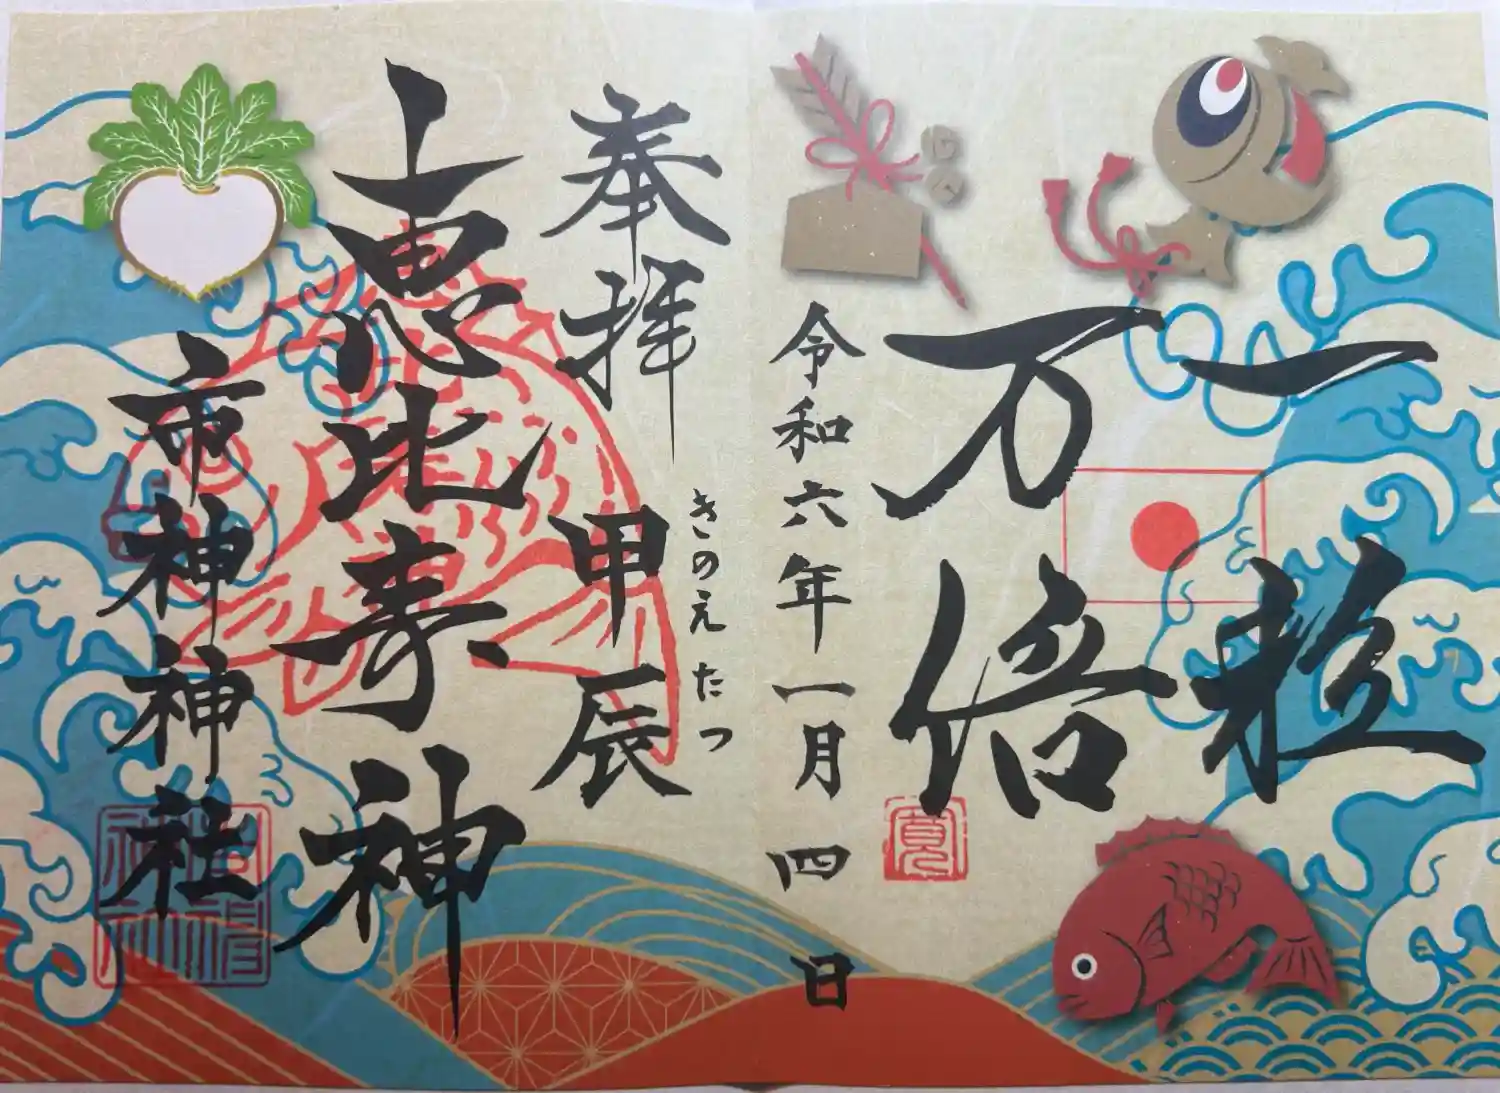 一粒
万倍
寛
令和六年一月四日
奉拝
甲辰
きのえたつ
恵比寿神
市神神社